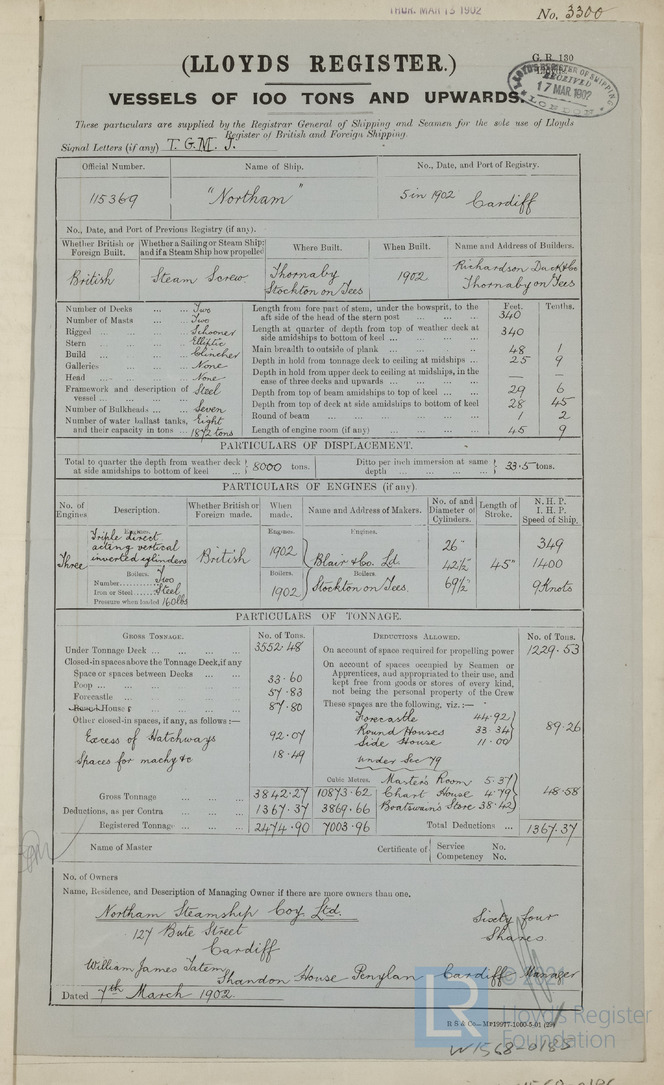 THUR. MAR 13 1902
No. 3300
(LLOYDS REGISTER.)
G. R. 130
VESSELS OF 100 TONS AND UPWARDS.
LLOYD'S REGISTER OF SHIPPING RECEIVED 17 MAR 1902 LONDON
These particulars are supplied by the Registrar General of Shipping and Seamen for the sole use of Lloyds
Register of British and Foreign Shipping.
Signal Letters (if any) T. G. M. J.
Official Number. Name of Ship. No., Date, and Port of Registry.
115369 "Northam" 5 in 1902 Cardiff
No., Date, and Port of Previous Registry (if any).
Whether British or Foreign Built. Whether a Sailing or Steam Ship; and if a Steam Ship how propelled Where Built. When Built. Name and Address of Builders.
British Steam Screw Thornaby Stockton on Tees 1902 Richardson Duck & Co Thornaby on Tees
Feet. Tenths.
Number of Decks ... ... Two
Number of Masts ... ... Two
Rigged ... ... ... Schooner
Stern ... ... ... Elliptic
Build ... ... ... Clincher
Galleries ... ... None
Head ... ... ... None
Framework and description of vessel ... ... ... Steel
Number of Bulkheads ... ... Seven
Number of water ballast tanks, and their capacity in tons ... Eight 1872 tons
Length from fore part of stem, under the bowsprit, to the aft side of the head of the stern post ... ... 340
Length at quarter of depth from top of weather deck at side amidships to bottom of keel ... ... 340
Main breadth to outside of plank ... ... 48 1
Depth in hold from tonnage deck to ceiling at midships ... 25 9
Depth in hold from upper deck to ceiling at midships, in the case of three decks and upwards ... ... — —
Depth from top of beam amidships to top of keel ... ... 29 6
Depth from top of deck at side amidships to bottom of keel 28 45
Round of beam ... ... 1 2
Length of engine room (if any) ... ... 45 9
PARTICULARS OF DISPLACEMENT.
Total to quarter the depth from weather deck at side amidships to bottom of keel ... 8000 tons. Ditto per inch immersion at same depth ... ... 33.5 tons.
PARTICULARS OF ENGINES (if any).
No. of Engines. Description. Whether British or Foreign made. When made. Name and Address of Makers. No. of and Diameter of Cylinders. Length of Stroke. N. H. P. I. H. P. Speed of Ship.
Engines. Engines. Engines.
Three Triple direct acting vertical inverted cylinders British 1902 Blair & Co. Ld. 26" 42½" 69½" 45" 349 1400 9 Knots
Boilers. Boilers. Boilers.
Number ... Two
Iron or Steel ... Steel
Pressure when loaded 160 lbs
1902 Stockton on Tees
PARTICULARS OF TONNAGE.
GROSS TONNAGE. No. of Tons. DEDUCTIONS ALLOWED. No. of Tons.
Under Tonnage Deck ... ... 3552.48
Closed-in spaces above the Tonnage Deck, if any
Space or spaces between Decks ...
Poop ... ... 33.60
Forecastle ... ... 57.83
Houses ... ... 87.80
Other closed-in spaces, if any, as follows :—
Excess of Hatchways 92.07
Spaces for machy &c 18.49
On account of space required for propelling power 1229.53
On account of spaces occupied by Seamen or Apprentices, and appropriated to their use, and kept free from goods or stores of every kind, not being the personal property of the Crew
These spaces are the following, viz. :—
Forecastle 44.92
Round Houses 33.34
Side House 11.00
89.26
under Sec 79
Cubic Metres.
Master's Room 5.37
Chart House 4.79
Boatswain's Store 38.42
48.58
Gross Tonnage ... ... 3842.27 10873.62
Deductions, as per Contra ... ... 1367.37 3869.66
Registered Tonnage ... ... 2474.90 7003.96
Total Deductions ... 1367.37
Name of Master Certificate of Service No.
Competency No.
No. of Owners
Name, Residence, and Description of Managing Owner if there are more owners than one.
Northam Steamship Coy. Ltd. Sixty four
127 Bute Street Shares
Cardiff
William James Tatem, Shandon House Penylan Cardiff Manager
Dated 7th March 1902.
LR © 202
Lloyd's Register
Foundation
W1568-0185